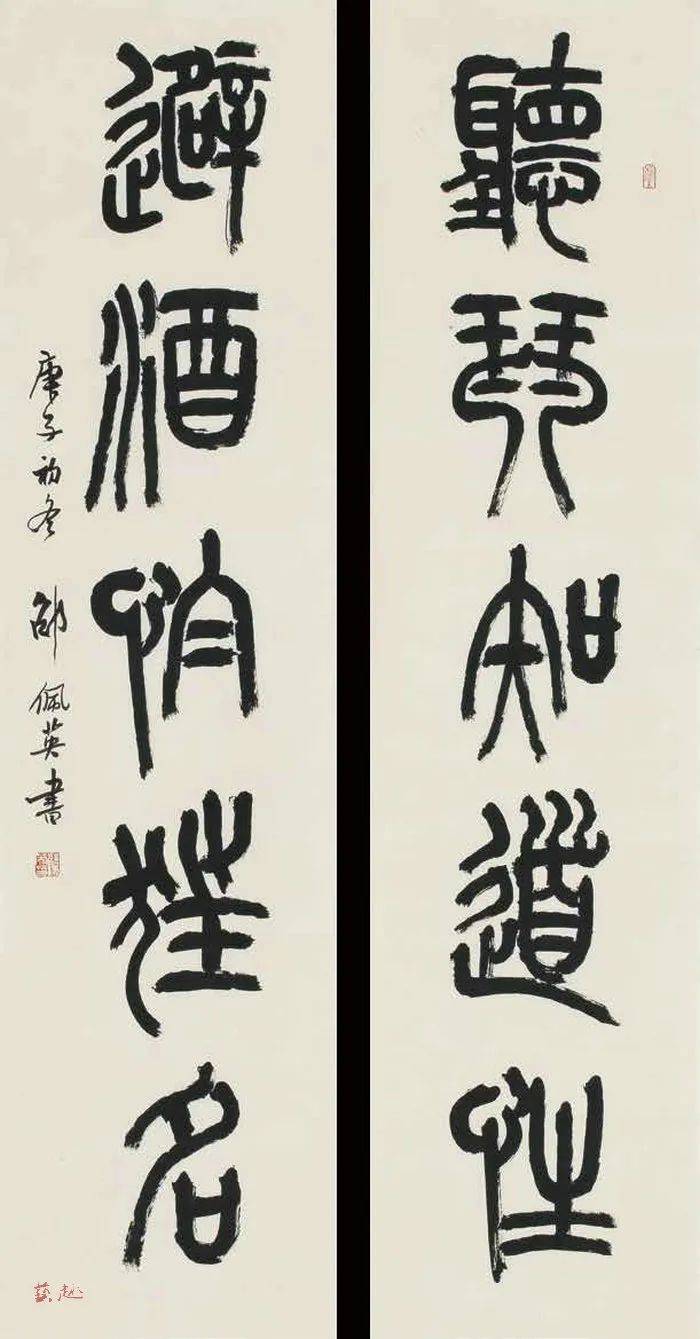 聽琴知道性
避酒怕狂名
庚子初冬 邵佩英書